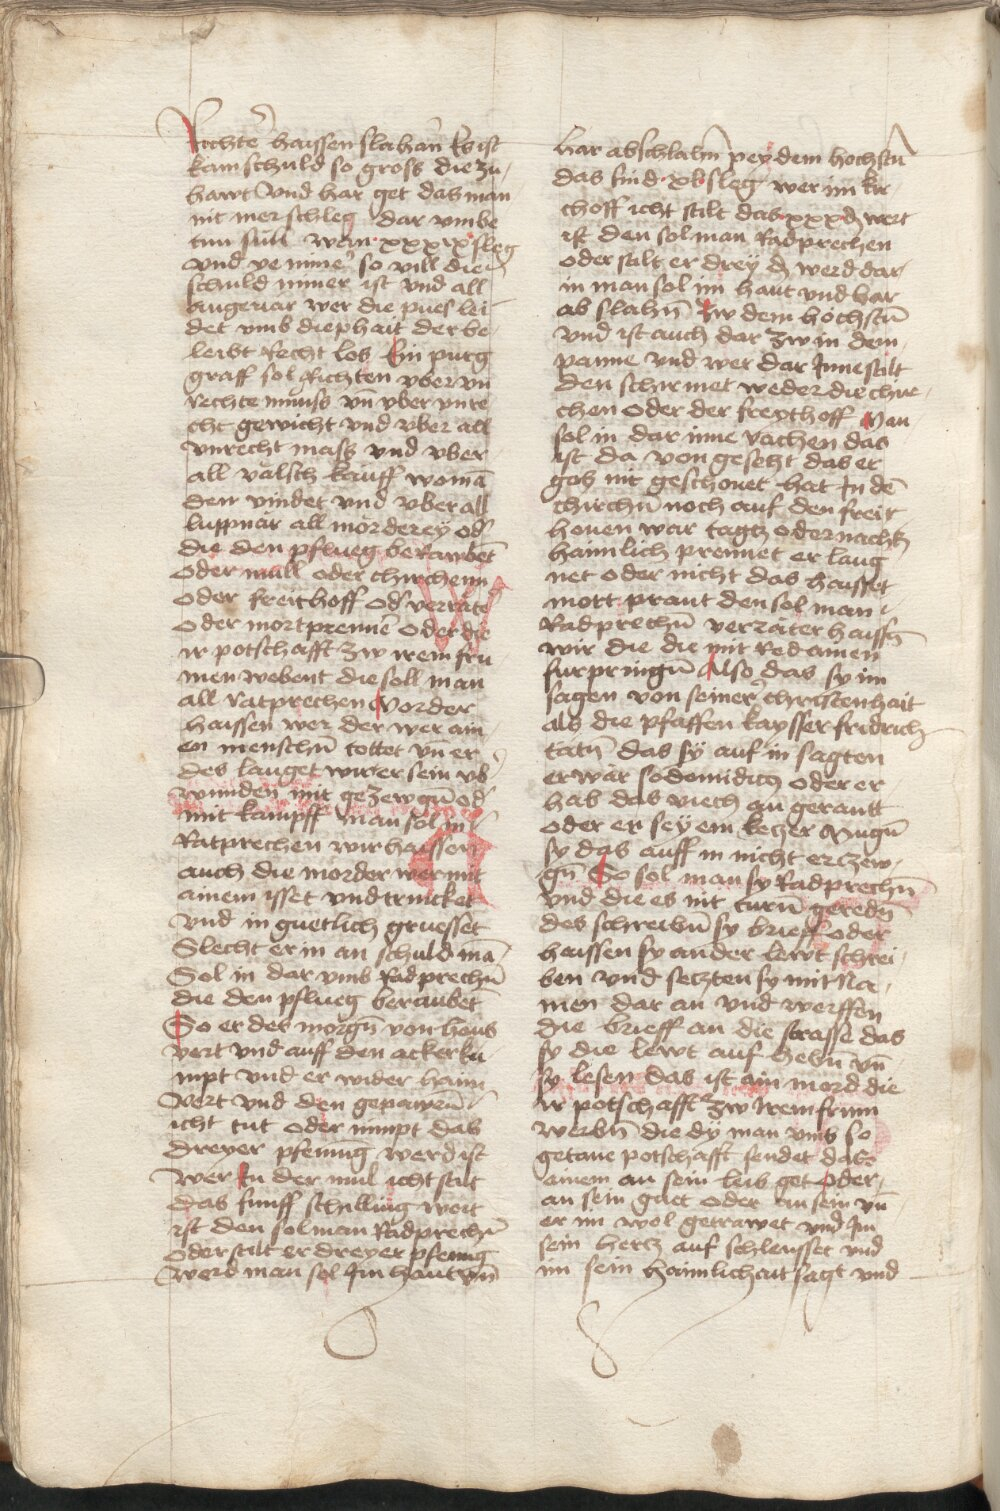 Rechte haissen slahan Es ist
kain schuld so gross die zu
hawt Vnd har get das man
nit mer schleg dar vmbe
tun sull wein xxxix sleg
vnd ye miner so vill die
schuld miner ist vnd all
angeuar wer die pues lei
det vmb diephait der be
leibt Recht los Ein purg
graff sol Richten vber vn
rechte muͤnss vn̄ vber vnre
cht gewicht vnd vber all
vnrecht mass vnd vber
all valsch kauff wo mā
den vindet vnd vber all
luppnar all morderey od̄
die den pflueg beRawbet
oder mull oder chirchenn
oder freithoff od̄ verrate
oder mortprenne oder die
ir potschafft zw irem fru
men webent die soll man
all ratprechen Morder
haissen wer der wer ain
en menschn̄ tottet vn̄ er
des lauget wirt er sein vb
wunden mit gezewgn̄ od̄
mit kampff man sol in
Ratprechen wir haissen
auch die morder wer mit
ainem isset vnd trincket
vnd in guetlich gruesset
Slecht er in an schuld mā
Sol in dar vmb Radprechn̄
die den pflueg beraubet
So er des morgn̄ von hous
vert vnd auff den acker ku
mpt vnd er wider haim
Vert vnd den gepawrn̄
icht tut oder nimpt das
dreyer pfenning werd ist
Wer in der mul icht stilt
das funff schilling wert
ist den sol man Radprechn̄
oder stilt er dreyer pfenig
Werd man sol Im haut vn̄
har abschlahn̄ pey dem hochstn̄
das sind xl sleg wer im kir
choff icht stilt das xxx ₰ wert
ist den sol man Radprechen
oder stilt er drey ₰ werd dar
in man sol im haut vnd har
ab slahn̄ Zw dem hochstn̄
vnd ist auch dar zw in dem
panne vnd wer dar Inne stilt
den schirmet weder die chir
chen oder der freythoff Man
sol in dar inne vachen das
ist da von gesetzt das er
gotz nit geschonet hat In dē
chirchn̄ noch auf den freit
houen war tagtz oder nachtz
haimlich prennet er laug
net oder nicht das haisset
mort prant den sol man
Radprechn̄ verrater haissn̄
wir die die mit Red ainen
furpringn̄ Also das sy im
sagen von seiner christenhait
als die pfaffen kaysser fridrich
tatn̄ das sy auf in sagten
er wär sodomiditz oder er
hab das viech an gerautt
oder er sey ein ketzer Mugn̄
sy das auff in nicht erczew
gn̄ So sol man sy Radprechn̄
vnd die es nit turn̄ geredn̄
des schreibn̄ sy brieff oder
haissen sy ander lewt schrei
ben vnd setzten sy mit na
men dar an vnd werffen
die brieff an die strasse das
sy die lewt auf hebn̄ vn̄
sy lesen das ist ain mord die
ir potschafft zw irem frum
werbn̄ die dy man vmb so
getane potschafft sendet das
ainem an sein leib get oder
an sein guet oder an sein vn̄
er im wol getrawet vnd Im
sein hertz auf schleusset vnd
im sein haimlichait sagt vnd